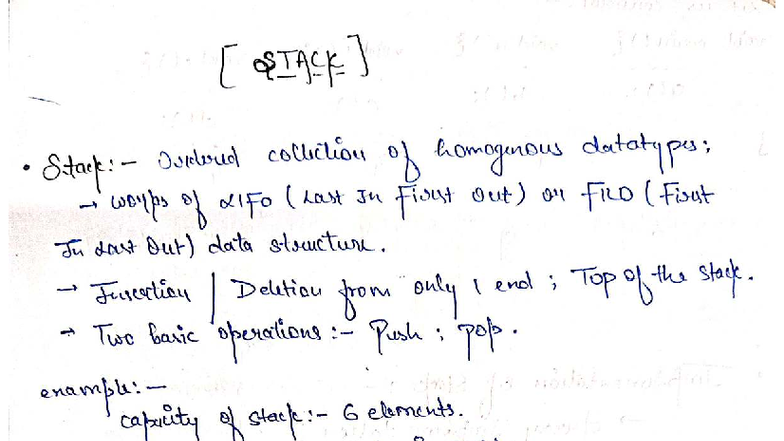 [ STACK ]
• Stack:- Ordered collection of homogenous datatypes;
→ works of LIFO (Last In First Out) or FILO (First
In Last Out) data structure.
→ Insertion / Deletion from only 1 end ; Top of the stack.
→ Two basic operations:- Push ; pop.
example:-
capacity of stack:- 6 elements.